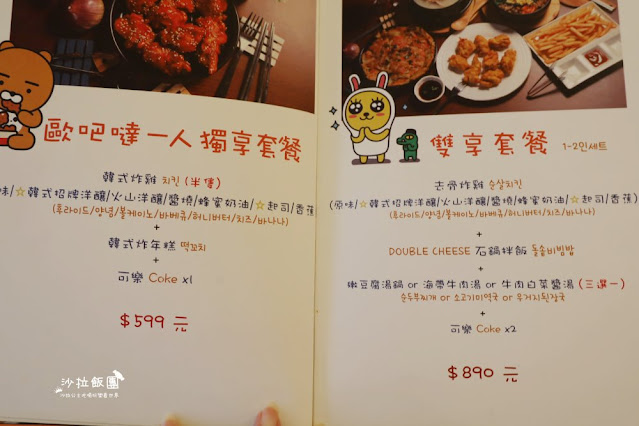 歐吧噠一人獨享套餐
韓式炸雞 치킨 (半隻)
味/☆韓式招牌洋釀/火山洋釀/醬燒/蜂蜜奶油/☆起司/香蕉
(후라이드/양념/볼케이노/바베큐/허니버터/치즈/바나나)
+
韓式炸年糕 떡꼬치
+
可樂 Coke x1
$599 元
沙拉飯團
雙享套餐 1-2인세트
去骨炸雞 순살치킨
(原味/☆韓式招牌洋釀/火山洋釀/醬燒/蜂蜜奶油/☆起司/香蕉
(후라이드/양념/볼케이노/바베큐/허니버터/치즈/바나나)
+
DOUBLE CHEESE 石鍋拌飯 돌솥비빔밥
+
嫩豆腐湯鍋 or 海帶牛肉湯 or 牛肉白菜醬湯 (三選一)
순두부찌개 or 소고기미역국 or 우거지된장국
+
可樂 Coke x2
$890 元